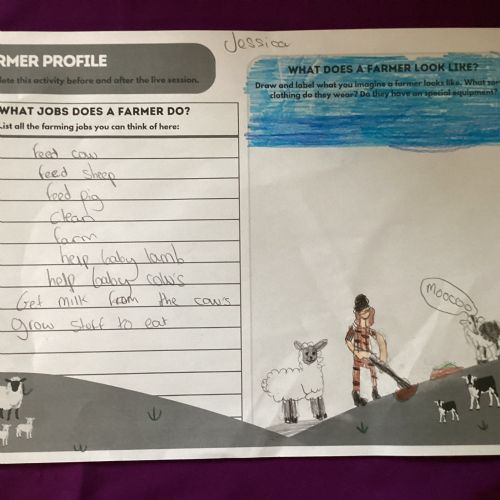 Jessica
RMER PROFILE
lete this activity before and after the live session.
WHAT JOBS DOES A FARMER DO?
List all the farming jobs you can think of here:
feed cow
feed sheep
feed pig
clean
farm
help baby lamb
help baby cow's
Get milk from the cow's
grow stuff to eat
WHAT DOES A FARMER LOOK LIKE?
Draw and label what you imagine a farmer looks like. What so
clothing do they wear? Do they have an special equipment?